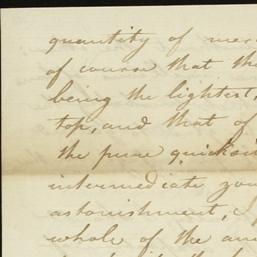 quantity of mer
of course that the
being the lightest,
top, and that of
the pure quicksi
intermediate you
astonishment,
whole of the am